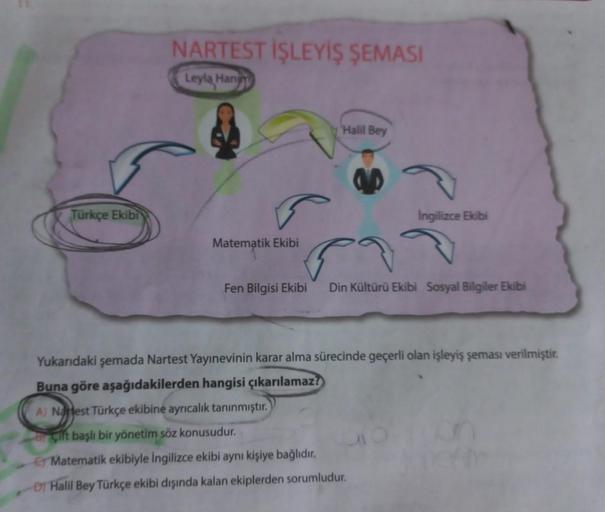 NARTEST İŞLEYİŞ ŞEMASI
Leyla Hanım
Halil Bey
Türkçe Ekibi
İngilizce Ekibi
Matematik Ekibi
Fen Bilgisi Ekibi
Din Kültürü Ekibi
Sosyal Bilgiler Ekibi
Yukarıdaki şemada Nartest Yayınevinin karar alma sürecinde geçerli olan işleyiş şeması verilmiştir.
Buna göre aşağıdakilerden hangisi çıkarılamaz?
A) Nartest Türkçe ekibine ayrıcalık tanınmıştır.
B) Çift başlı bir yönetim söz konusudur.
C) Matematik ekibiyle İngilizce ekibi aynı kişiye bağlıdır.
D) Halil Bey Türkçe ekibi dışında kalan ekiplerden sorumludur.